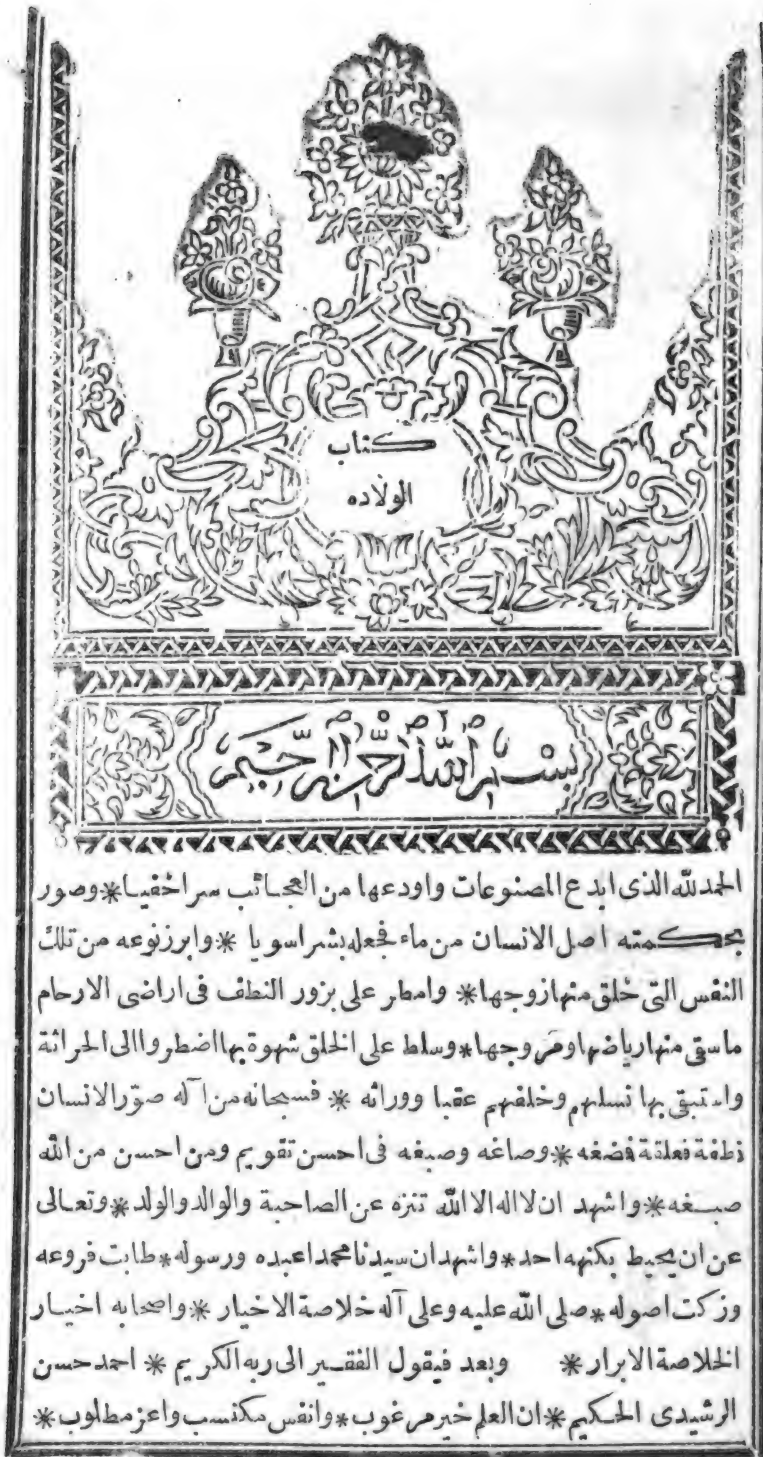 كتاب
الولاده
بسم الله الرحمن الرحيم
الحمد لله الذى ابدع المصنوعات واودعها من العجائب سرا خفيا * وصور
بحكمته اصل الانسان من ماء فجعله بشرا سويا * وابرز نوعه من تلك
النفس التى خلق منها زوجها * وامطر على بزور النطف فى اراضى الارحام
ماسقى منها رياضها ومروجها * وسلط على الخلق شهوة بها اضطروا الى الحراثة
واستبقى بها نسلهم وخلفهم عقبا ووراثه * فسبحانه من اله صوّر الانسان
نطفة فعلقة فضغه * وصاغه وصبغه فى احسن تقويم ومن احسن من الله
صبغه * واشهد ان لا اله الا الله تنزه عن الصاحبة والوالد والولد * وتعالى
عن ان يحيط بكنهه احد * واشهد ان سيدنا محمدا عبده ورسوله * طابت فروعه
وزكت اصوله * صلى الله عليه وعلى آله خلاصة الاخيار * واصحابه اخيار
الخلاصة الابرار * وبعد فيقول الفقير الى ربه الكريم * احمد حسن
الرشيدى الحكيم * ان العلم خير مرغوب * وانفس مكتسب واعز مطلوب *